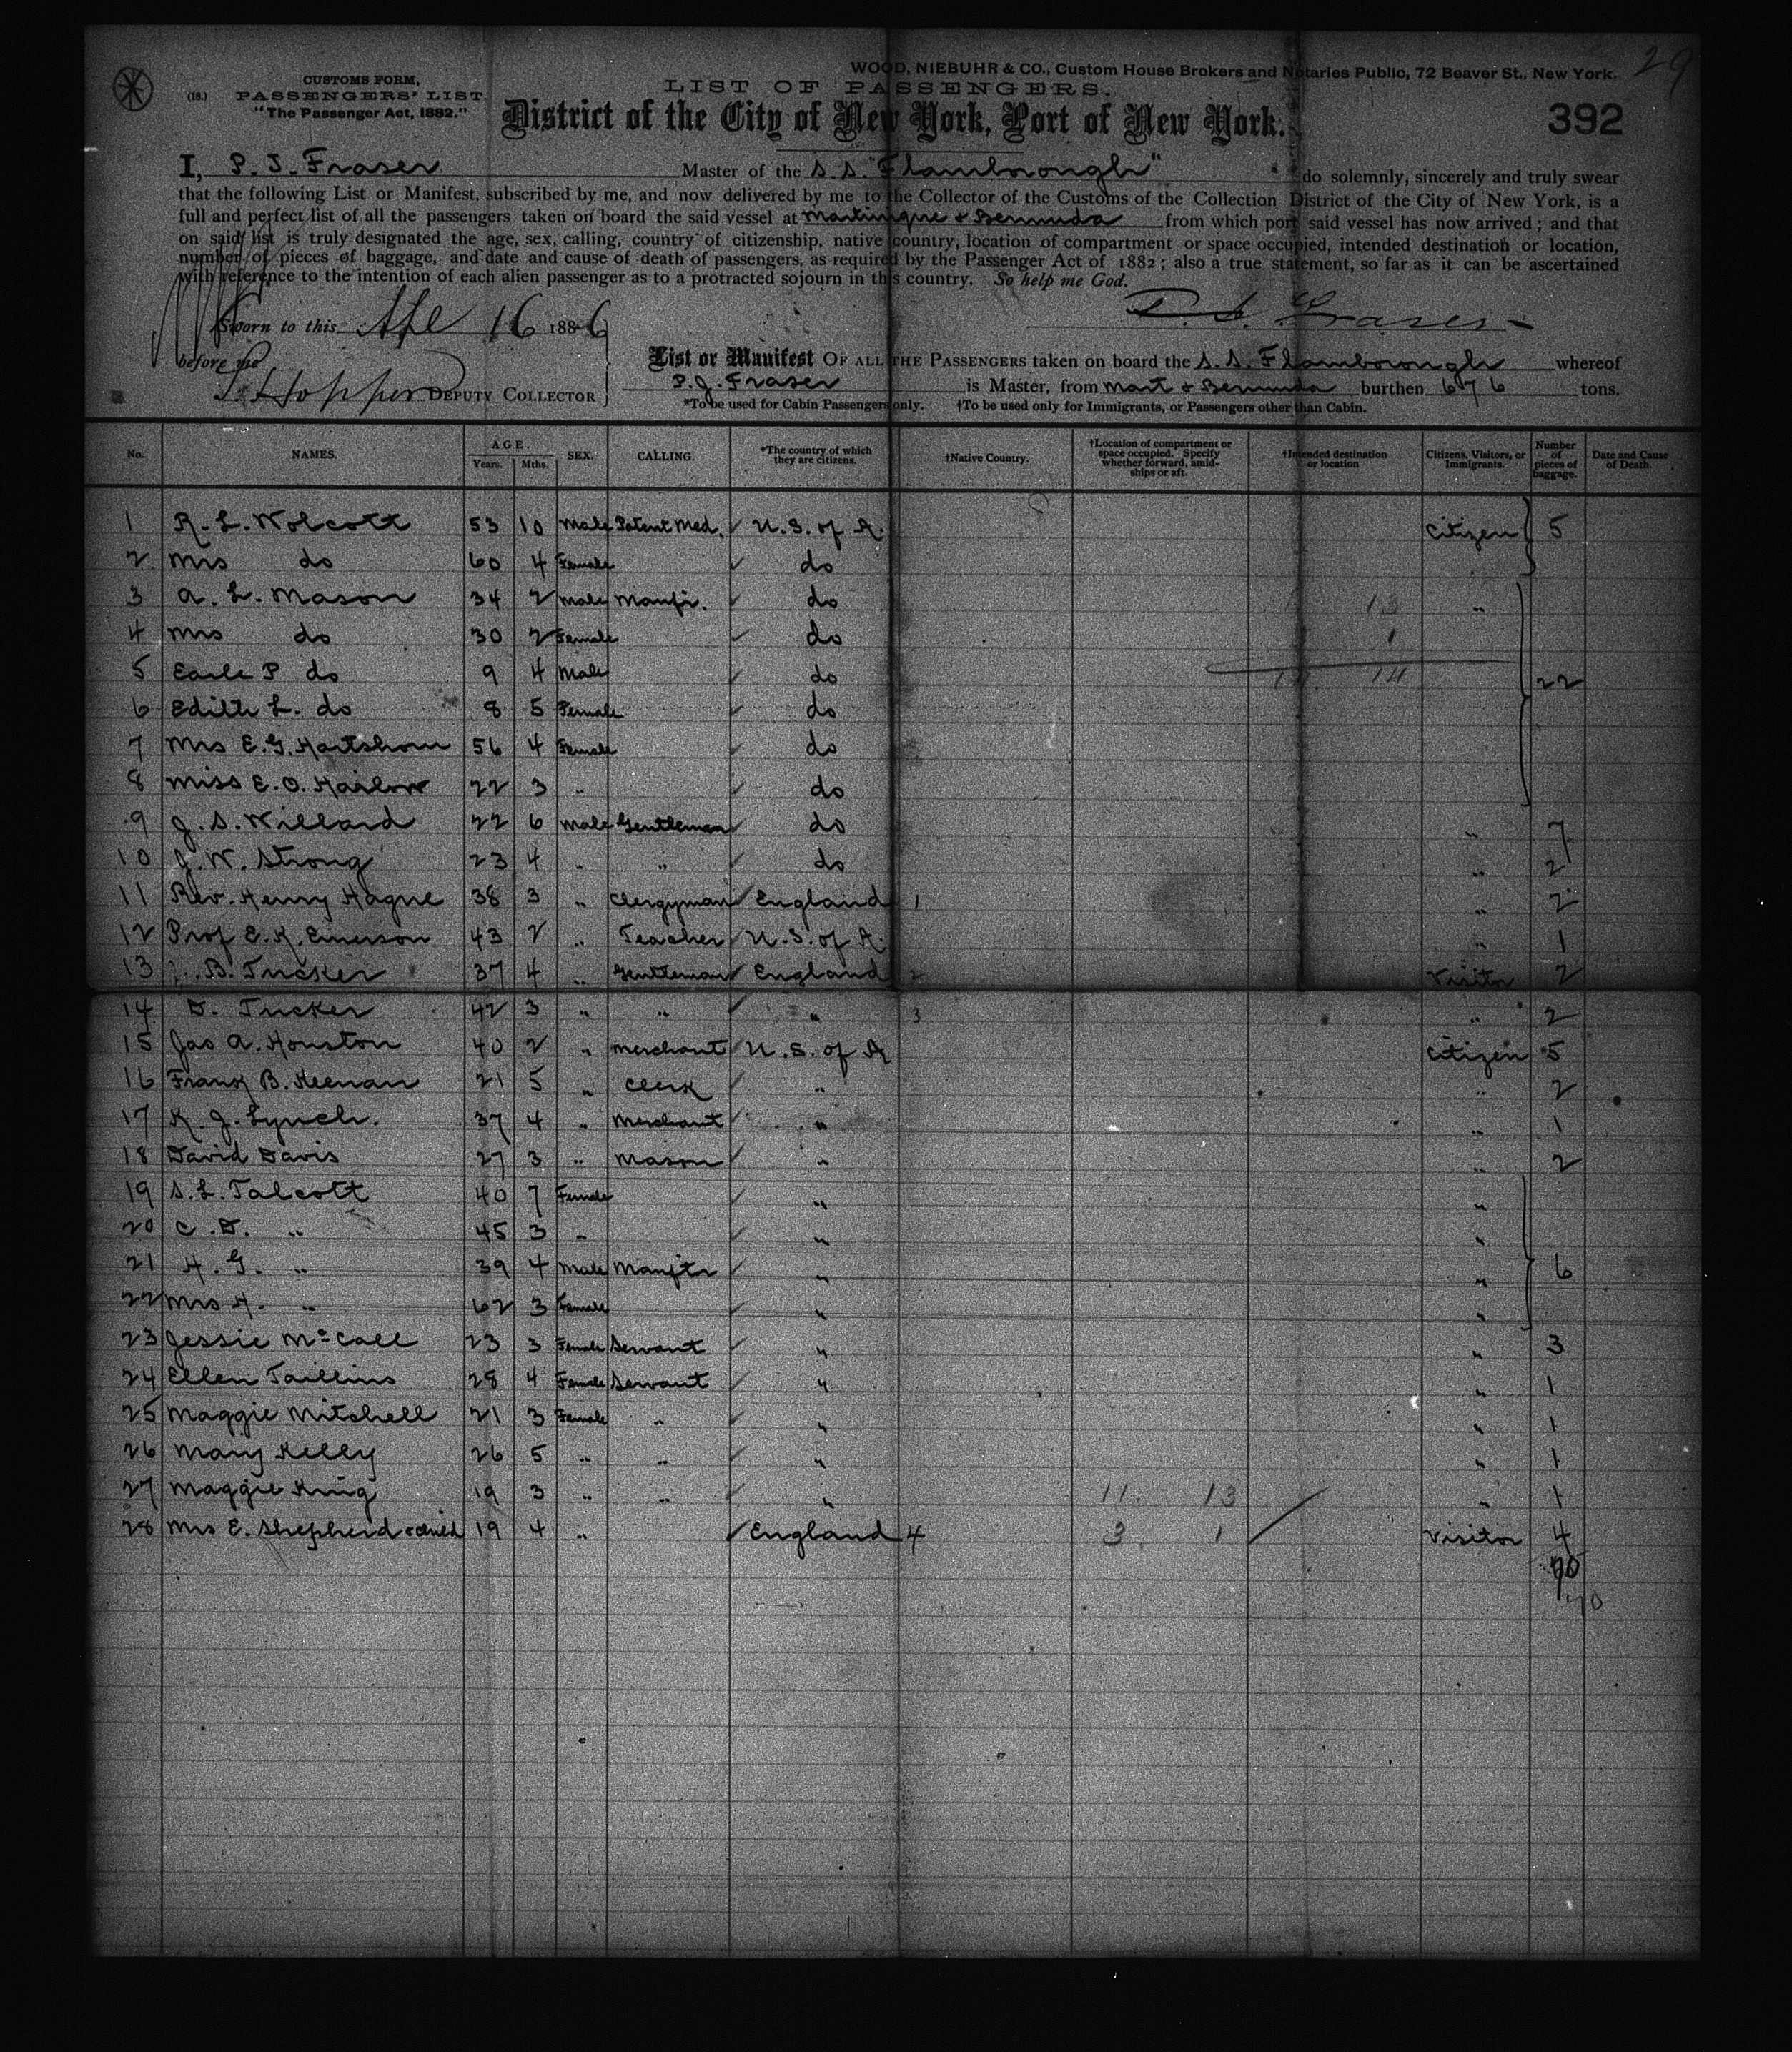 WOOD, NIEBUHR & CO., Custom House Brokers and Notaries Public, 72 Beaver St., New York. 29
CUSTOMS FORM,
(18.) PASSENGERS' LIST.
"The Passenger Act, 1882."
LIST OF PASSENGERS.
District of the City of New York, Port of New York.
392
I, P. J. Fraser Master of the S.S. "Flamborough" do solemnly, sincerely and truly swear
that the following List or Manifest, subscribed by me, and now delivered by me to the Collector of the Customs of the Collection District of the City of New York, is a
full and perfect list of all the passengers taken on board the said vessel at Martinique & Bermuda from which port said vessel has now arrived; and that
on said list is truly designated the age, sex, calling, country of citizenship, native country, location of compartment or space occupied, intended destination or location,
number of pieces of baggage, and date and cause of death of passengers, as required by the Passenger Act of 1882; also a true statement, so far as it can be ascertained
with reference to the intention of each alien passenger as to a protracted sojourn in this country. So help me God.
P. J. Fraser
Sworn to this Apl 16 1886
before me
Hopper DEPUTY COLLECTOR
List or Manifest OF ALL THE PASSENGERS taken on board the S.S. Flamborough whereof
P. J. Fraser is Master, from Mart & Bermuda burthen 676 tons.
*To be used for Cabin Passengers only. †To be used only for Immigrants, or Passengers other than Cabin.
No. NAMES. AGE. Years. Mths. SEX. CALLING. *The country of which they are citizens. †Native Country. †Location of compartment or space occupied. Specify whether forward, amidships or aft. †Intended destination or location Citizens, Visitors, or Immigrants. Number of pieces of baggage. Date and Cause of Death.
1 R. L. Wolcott 53 10 Male Patent Med. U.S. of A. Citizen 5
2 Mrs do 60 4 Female do
3 A. L. Mason 34 2 Male Manfr. do 13 "
4 Mrs do 30 2 Female do 1
5 Earle P do 9 4 Male do 14 22
6 Edith L. do 8 5 Female do
7 Mrs E. G. Hartshorn 56 4 Female do
8 Miss E. O. Harlow 22 3 " do
9 J. S. Willard 22 6 Male Gentleman do " 7
10 J. W. Strong 23 4 " " do " 2
11 Rev. Henry Hague 38 3 " Clergyman England 1 " 2
12 Prof E. K. Emerson 43 2 " Teacher U.S. of A. " 1
13 B. Tucker 37 4 " Gentleman England 2 Visitor 2
14 D. Tucker 42 3 " " " 3 " 2
15 Jas A. Houston 40 2 " Merchant U.S. of A Citizen 5
16 Frank B. Keenan 21 5 " Clerk " " 2
17 K. J. Lynch. 37 4 " Merchant " " 1
18 David Davis 27 3 " Mason " " 2
19 S. L. Talcott 40 7 Female " "
20 C. D. " 45 3 " " "
21 H. G. " 39 4 Male Manftr " " 6
22 Mrs H. " 62 3 Female " "
23 Jessie McCall 23 3 Female Servant " " 3
24 Ellen 28 4 Female Servant " " 1
25 Maggie Mitchell 21 3 Female " " " 1
26 Mary Kelly 26 5 " " " " 1
27 Maggie King 19 3 " " " 11. 13 " 1
28 Mrs E. Shepherd & child 19 4 " England 4 3. 1 Visitor 4
70
70